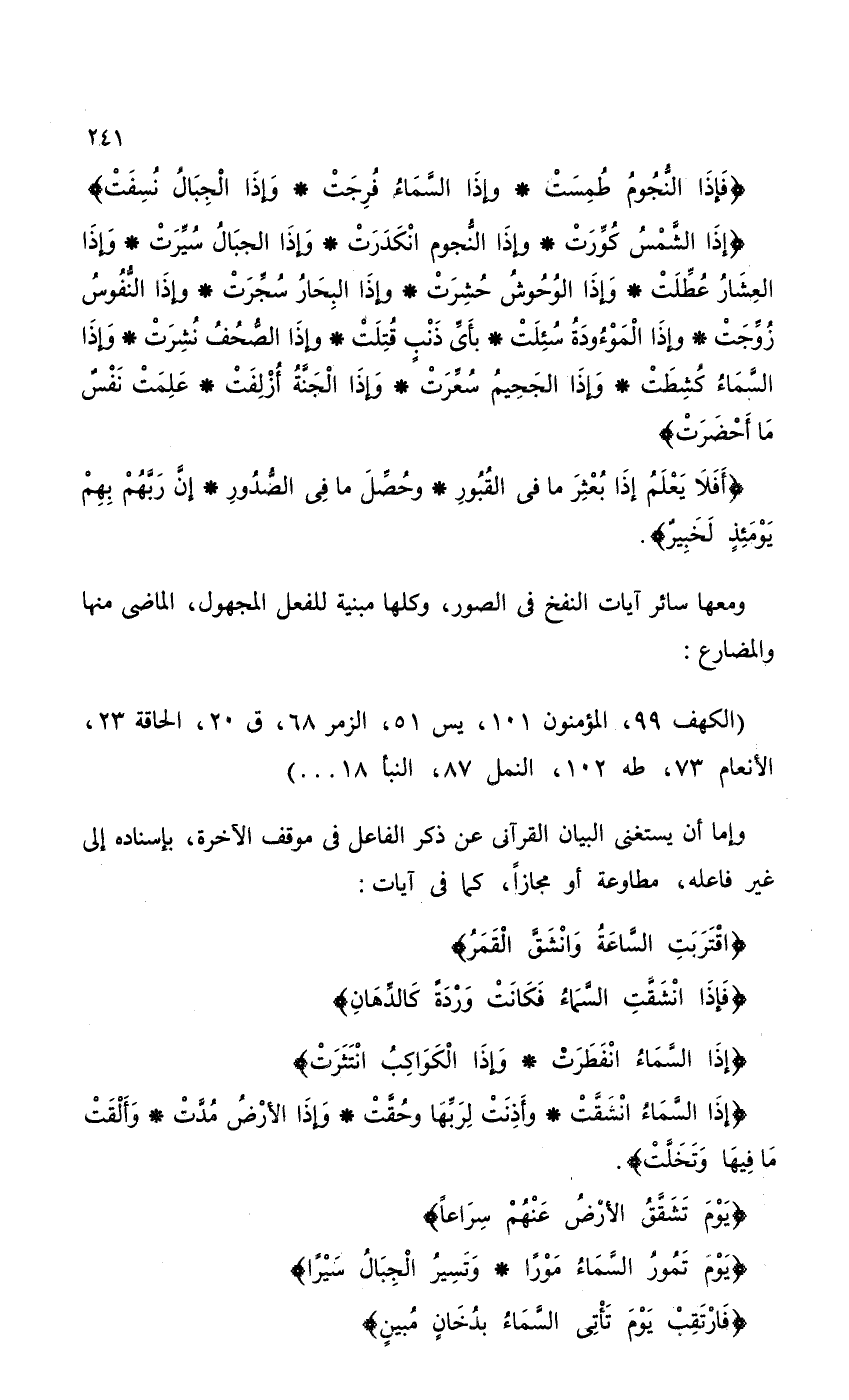 ٢٤١
﴿فَإِذَا النُّجُومُ طُمِسَتْ * وإذَا السَّمَاءُ فُرِجَتْ * وَإِذَا الْجِبَالُ نُسِفَتْ﴾
﴿إذَا الشَّمْسُ كُوِّرَتْ * وإذَا النُّجوم انْكَدَرَتْ * وَإذَا الجبَالُ سُيِّرَتْ * وَإِذَا
العِشَارُ عُطِّلَتْ * وَإِذَا الوُحُوشُ حُشِرَتْ * وإذَا البِحَارُ سُجِّرَتْ * وإذَا النُّفُوسُ
زُوِّجَتْ * وإذَا الْمَوْءُودَةُ سُئِلَتْ * بأَىِّ ذَنْبٍ قُتِلَتْ * وإذَا الصُّحُفُ نُشِرَتْ * وَإِذَا
السَّمَاءُ كُشِطَتْ * وَإِذَا الجَحِيمُ سُعِّرَتْ * وَإِذَا الْجَنَّةُ أُزْلِفَتْ * عَلِمَتْ نَفْسٌ
مَا أَحْضَرَتْ﴾
﴿أَفَلَا يَعْلَمُ إذَا بُعْثِرَ ما فى القُبُورِ * وحُصِّلَ ما فِى الصُّدُورِ * إنَّ رَبَّهُمْ بِهِمْ
يَوْمَئِذٍ لَخَبِيرٌ﴾.
ومعها سائر آيات النفخ فى الصور، وكلها مبنية للفعل المجهول، الماضى منها
والمضارع :
(الكهف ٩٩، المؤمنون ١٠١، يس ٥١، الزمر ٦٨، ق ٢٠، الحاقة ٢٣،
الأنعام ٧٣، طه ١٠٢، النمل ٨٧، النبأ ١٨...)
وإما أن يستغنى البيان القرآنى عن ذكر الفاعل فى موقف الآخرة، بإسناده إلى
غير فاعله، مطاوعة أو مجازاً، كما فى آيات :
﴿اقْتَرَبَتِ السَّاعَةُ وَانْشَقَّ الْقَمَرُ﴾
﴿فَإِذَا انْشَقَّتِ السَّمَاءُ فَكَانَتْ وَرْدَةً كَالدِّهَانِ﴾
﴿إذَا السَّمَاءُ انْفَطَرَتْ * وَإِذَا الْكَوَاكِبُ انْتَثَرَتْ﴾
﴿إذَا السَّمَاءُ انْشَقَّتْ * وأَذِنَتْ لِرَبِّهَا وحُقَّتْ * وَإِذَا الأرْضُ مُدَّتْ * وَأَلْقَتْ
مَا فِيهَا وَتَخَلَّتْ﴾.
﴿يَوْمَ تَشَقَّقُ الأرْضُ عَنْهُمْ سِرَاعاً﴾
﴿يَوْمَ تَمُورُ السَّمَاءُ مَوْرًا * وَتَسِيرُ الْجِبَالُ سَيْرًا﴾
﴿فَارْتَقِبْ يَوْمَ تَأْتِى السَّمَاءُ بدُخَانٍ مُبينٍ﴾